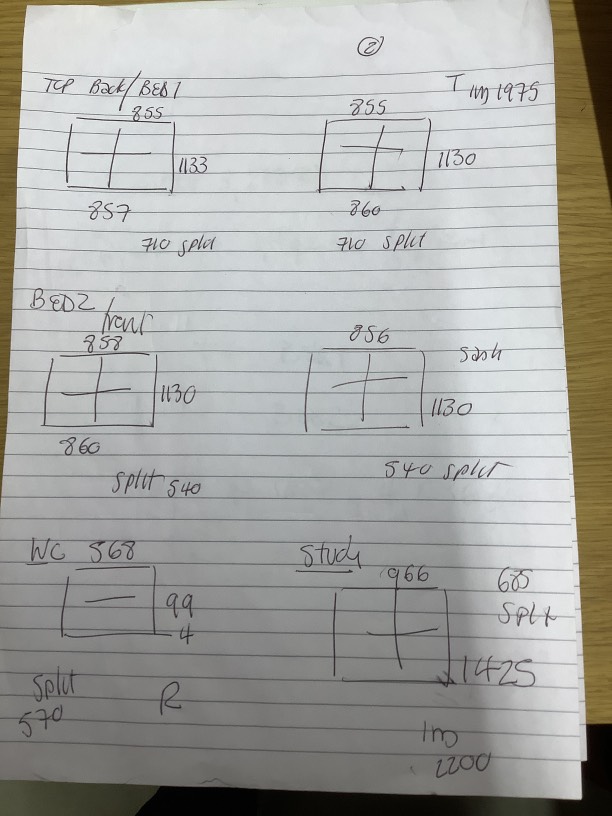 2
TOP Back/BED1
T
1m 1975
855
1133
857
710 split
855
1130
860
710 split
BED2
front
858
1130
860
split 540
856
sash
1130
540 split
WC 568
994
Split
570
R
Study
966
685
Split
1425
1m
2200